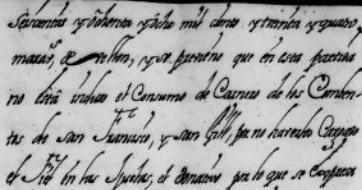 y ochenta y ocho mil ciento y treinta y quatro
maravs de vellon, y se previene que en esta partida
no está yncluso el Consumo de Carnero de los Conben
tos de san Francisco, y san Gill, por no haverlo Cargado
el fiel en las el donativo por lo que se